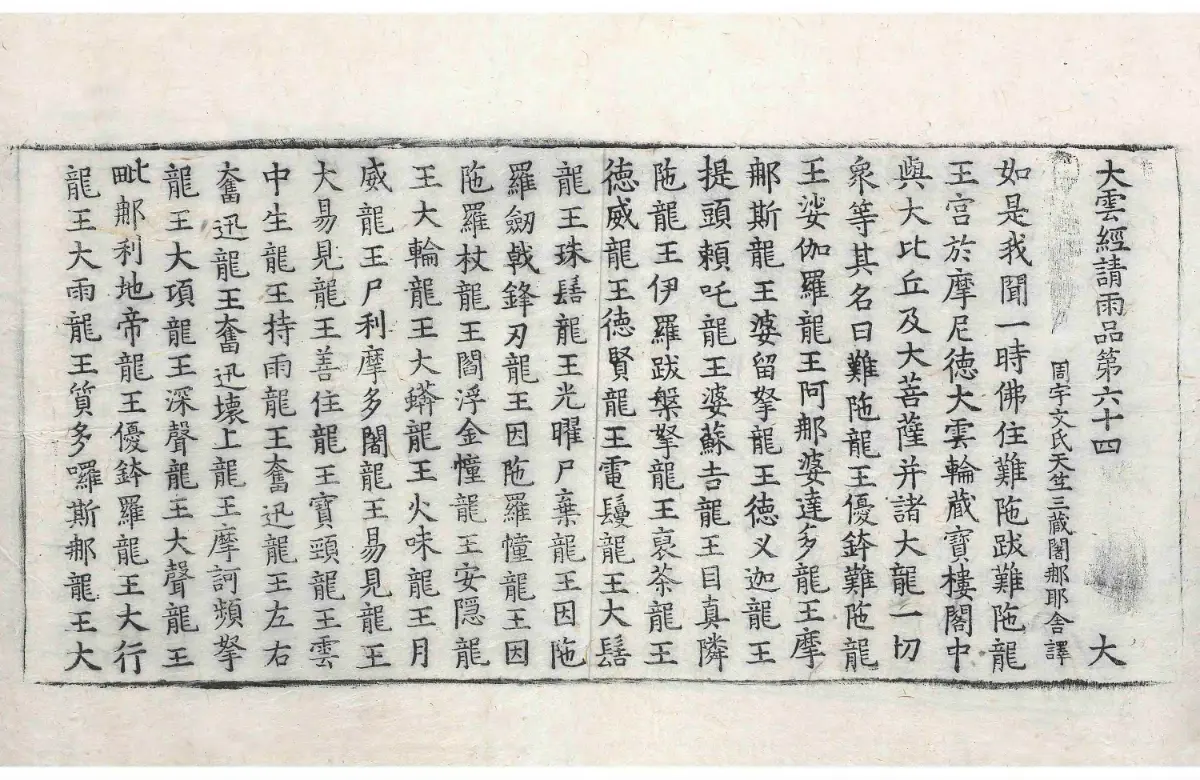 大雲經請雨品第六十四 大
周宇文氏天竺三藏闍那耶舍譯
如是我聞一時佛住難陁跋難陁龍
王宮於摩尼德大雲輪藏寶樓閣中
與大比丘及大菩薩并諸大龍一切
衆等其名曰難陁龍王優鉢難陁龍
王娑伽羅龍王阿那婆達多龍王摩
那斯龍王婆留拏龍王德义迦龍王
提頭賴吒龍王婆蘇吉龍王目真隣
陁龍王伊羅跋槃拏龍王裒茶龍王
德威龍王德賢龍王電鬘龍王大髻
龍王珠髻龍王光曜尸棄龍王因陁
羅劒戟鋒刃龍王因陁羅幢龍王因
陁羅杖龍王閻浮金幢龍王安隱龍
王大輪龍王大蟒龍王火味龍王月
威龍王尸利摩多闍龍王易見龍王
大易見龍王善住龍王寶頸龍王雲
中生龍王持雨龍王奮迅龍王左右
奮迅龍王奮迅壞上龍王摩訶頻拏
龍王大項龍王深聲龍王大聲龍王
毗那利地帝龍王優鉢羅龍王大行
龍王大雨龍王質多囉斯那龍王大